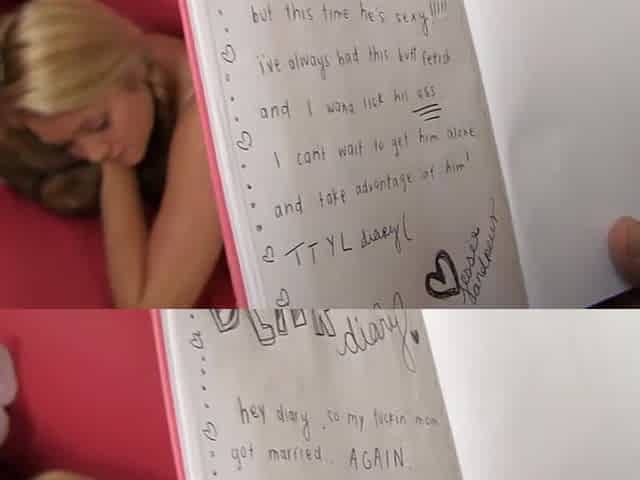 but this time he's sexy!!!!!
i've always had this butt fetish
and I wana lick his ass
I can't wait to get him alone
and take advantage of him!
TTYL diary(
Jesse
diary
hey diary, so my fuckin mom
got married.. AGAIN.